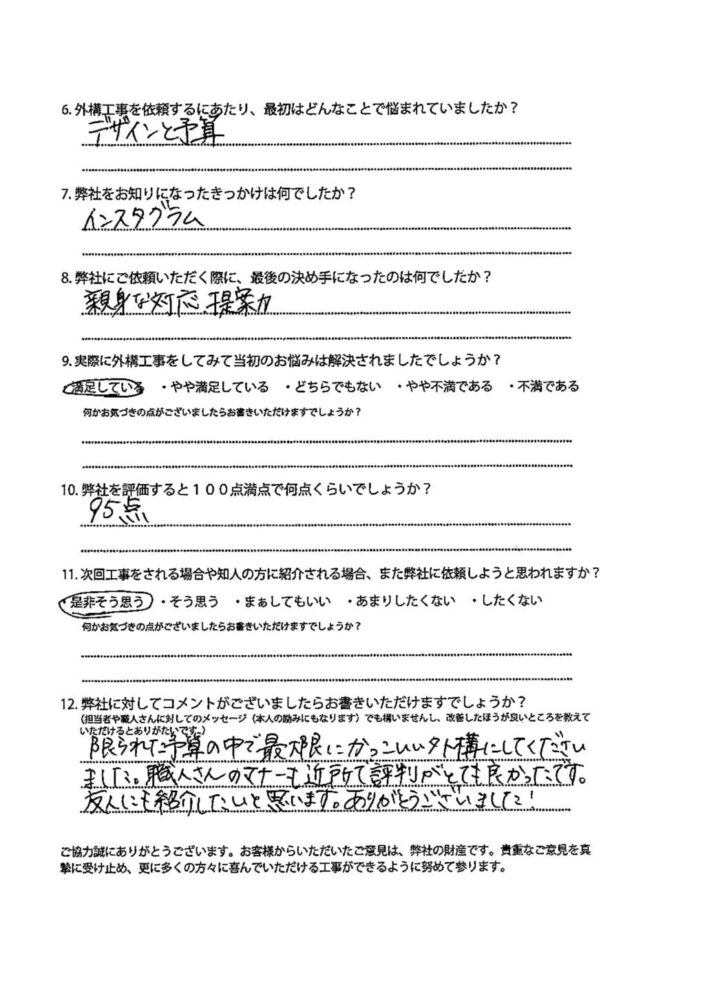 6. 外構工事を依頼するにあたり、最初はどんなことで悩まれていましたか？
デザインと予算
7. 弊社をお知りになったきっかけは何でしたか？
インスタグラム
8. 弊社にご依頼いただく際に、最後の決め手になったのは何でしたか？
親身な対応、提案力
9. 実際に外構工事をしてみて当初のお悩みは解決されましたでしょうか？
・満足している ・やや満足している ・どちらでもない ・やや不満である ・不満である
何かお気づきの点がございましたらお書きいただけますでしょうか？
10. 弊社を評価すると１００点満点で何点くらいでしょうか？
95点
11. 次回工事をされる場合や知人の方に紹介される場合、また弊社に依頼しようと思われますか？
・是非そう思う ・そう思う ・まぁしてもいい ・あまりしたくない ・したくない
何かお気づきの点がございましたらお書きいただけますでしょうか？
12. 弊社に対してコメントがございましたらお書きいただけますでしょうか？
（担当者や職人さんに対してのメッセージ（本人の励みにもなります）でも構いませんし、改善したほうが良いところを教えて
いただけるとありがたいです。）
限られた予算の中で最大限にかっこいい外構にしてください
ました。職人さんのマナーも近所で評判がとても良かったです。
友人にも紹介したいと思います。ありがとうございました！
ご協力誠にありがとうございます。お客様からいただいたご意見は、弊社の財産です。貴重なご意見を真
摯に受け止め、更に多くの方々に喜んでいただける工事ができるように努めて参ります。